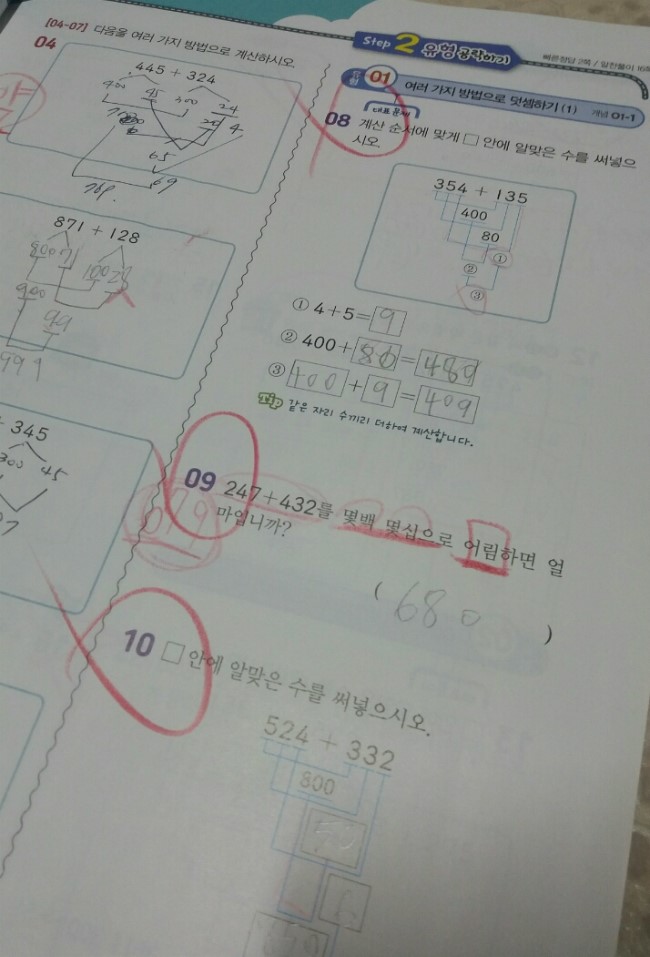 [04-07] 다음을 여러 가지 방법으로 계산하시오
04
445 + 324
400 45 300 24
65
69
871 + 128
800 71 100 28
900
99
999
+ 345
300 45
Step 2 유형공략하기
빠른정답 2쪽 /
유형 01 여러 가지 방법으로 덧셈하기 (1) 개념 01-1
대표 문제
08 계산 순서에 맞게 □ 안에 알맞은 수를 써넣으
시오
354 + 135
400
80
①
②
③
① 4+5=9
② 400+80=480
③ 400+9=409
Tip 같은 자리 수끼리 더하여 계산합니다.
09 247+432를 몇백 몇십으로 어림하면 얼
마입니까?
679
( 680 )
10 □ 안에 알맞은 수를 써넣으시오.
524 + 332
800
50
6